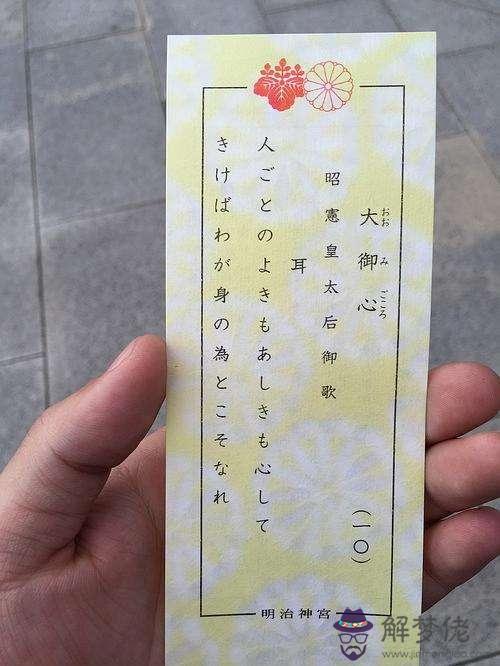 大御心
おおみごころ
(一〇)
昭憲皇太后御歌
耳
人ごとのよきもあしきも心して
きけばわが身の為とこそなれ
明治神宮
解梦佬
www.jiemenglao.com